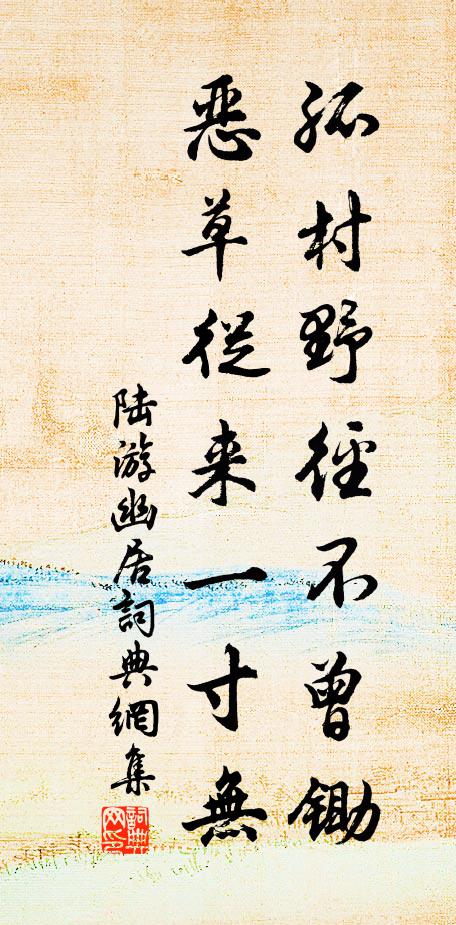 孤村野徑不曾鋤
惡草從来一寸無
陆游幽居詞典網集
詞典网印